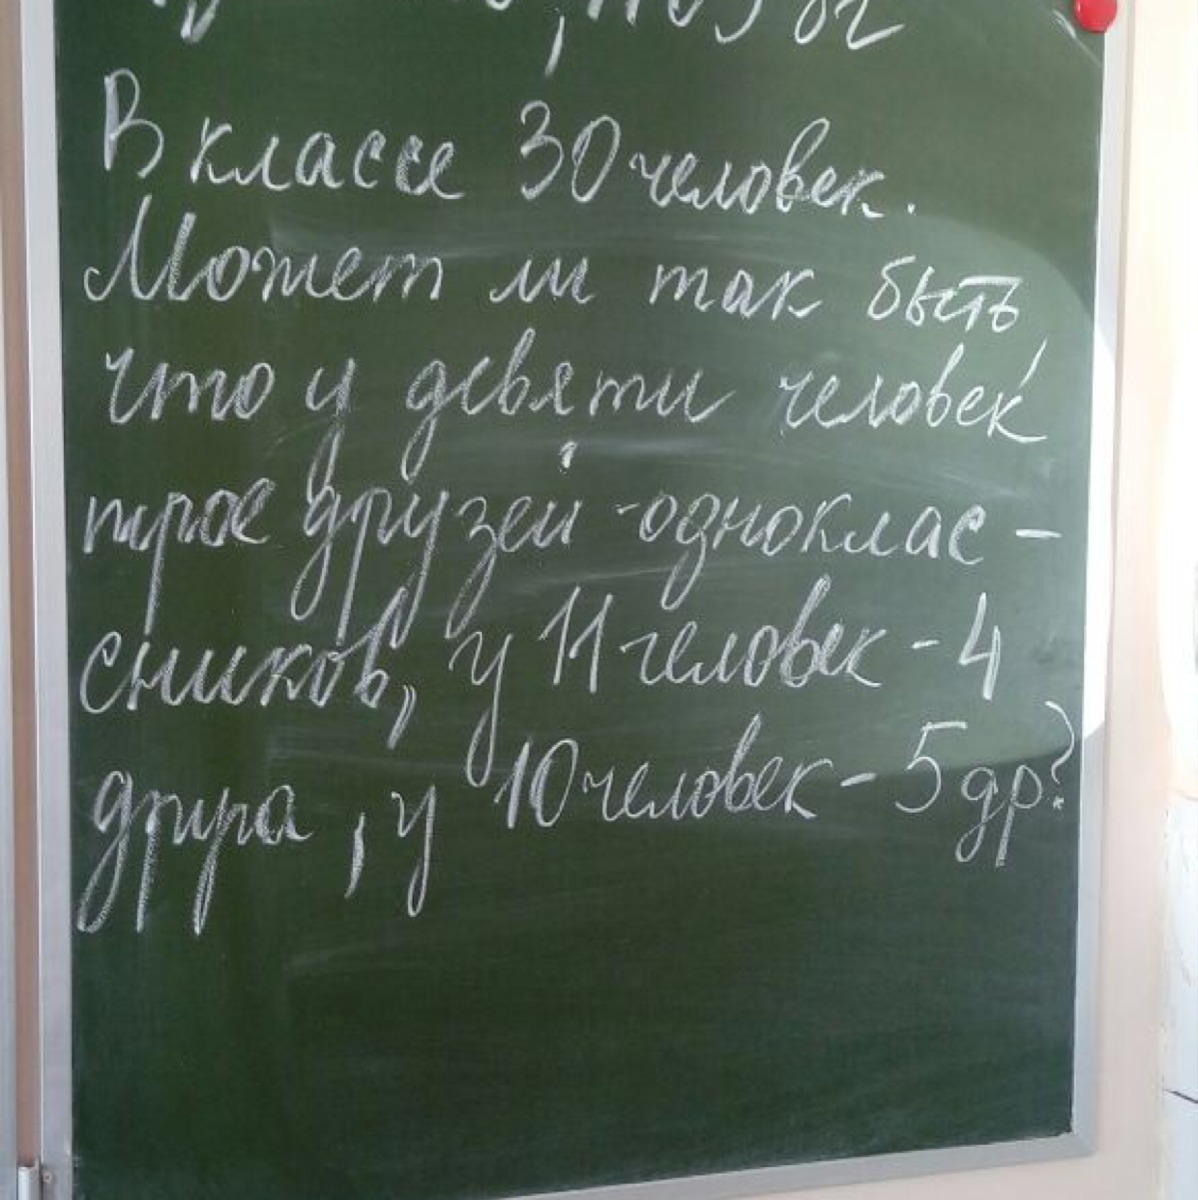 В классе 30 человек.
Может ли так быть,
что у девяти человек
трое друзей - одноклас-
сников, у 11 человек - 4
друга, у 10 человек - 5 др?